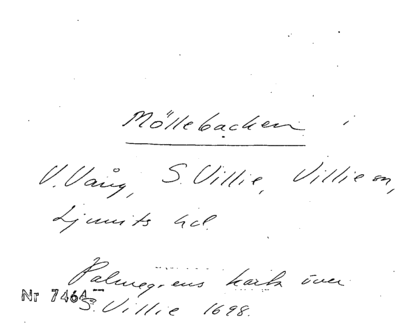 Möllebacken i
V. Vång, S. Villie, Villie sn,
Ljunits hd.
Palmgrens karta över
Nr 7464
S. Villie 1698.